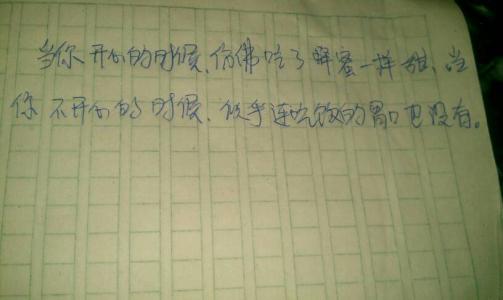 当你开心的时候，仿佛吃了蜂蜜一样甜，当
你不开心的时候，似乎连吃饭的胃口也没有。